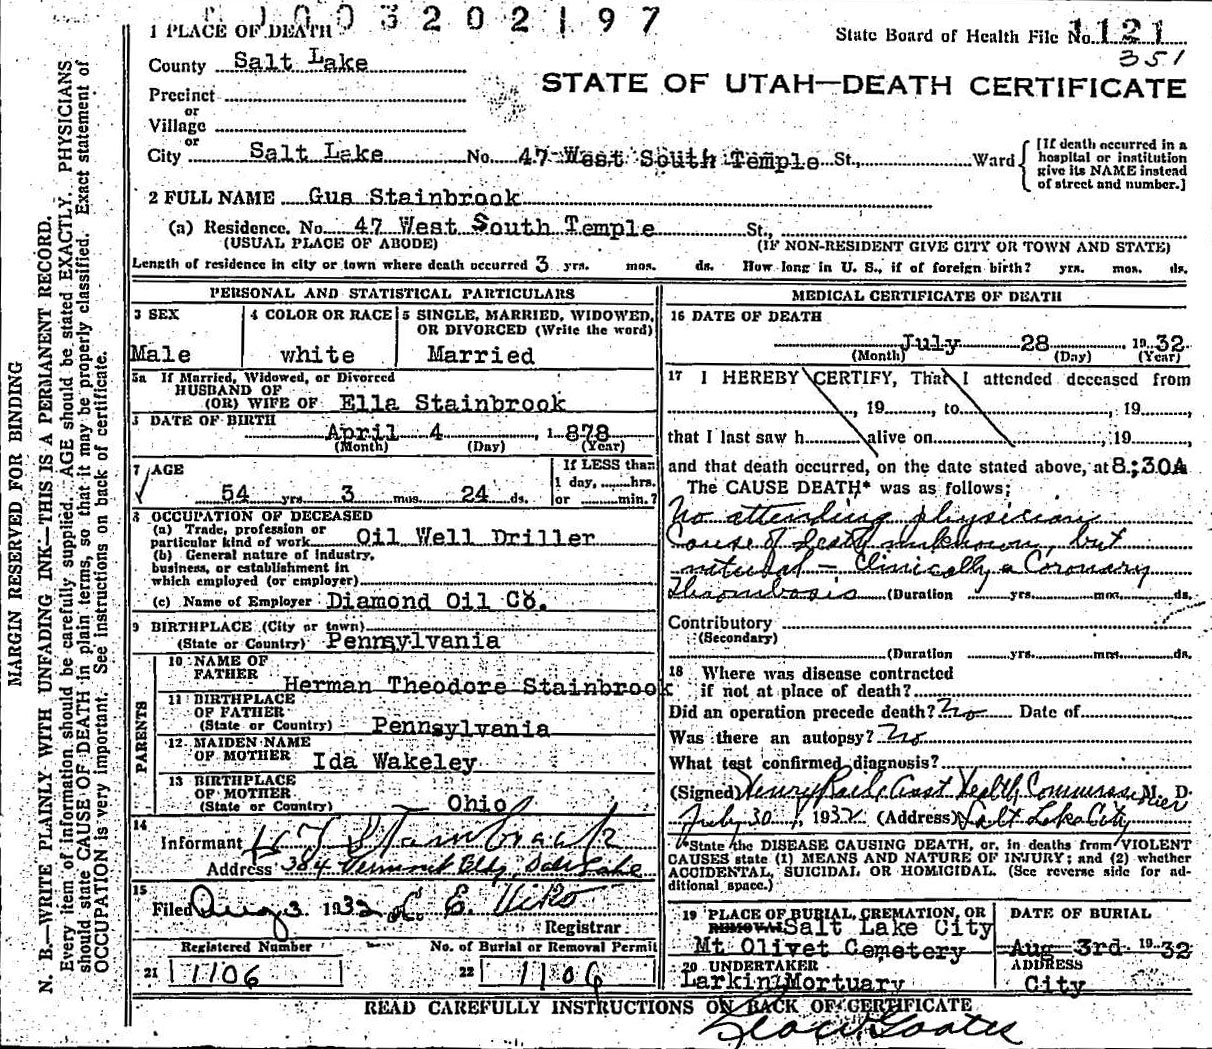 003202197
1 PLACE OF DEATH
State Board of Health File No. 1121
351
County Salt Lake
STATE OF UTAH—DEATH CERTIFICATE
Precinct
or
Village
or
City Salt Lake No. 47 West South Temple St., Ward
[If death occurred in a hospital or institution give its NAME instead of street and number.]
2 FULL NAME Gus Stainbrook
(a) Residence. No. 47 West South Temple St.,
(USUAL PLACE OF ABODE) (IF NON-RESIDENT GIVE CITY OR TOWN AND STATE)
Length of residence in city or town where death occurred 3 yrs. mos. ds. How long in U. S., if of foreign birth? yrs. mos. ds.
PERSONAL AND STATISTICAL PARTICULARS
3 SEX
Male
4 COLOR OR RACE
white
5 SINGLE, MARRIED, WIDOWED,
OR DIVORCED (Write the word)
Married
5a If Married, Widowed, or Divorced
HUSBAND OF
(OR) WIFE OF Ella Stainbrook
DATE OF BIRTH
April 4 1878
(Month) (Day) (Year)
7 AGE
54 yrs. 3 mos. 24 ds.
If LESS than
1 day, hrs.
or min.?
8 OCCUPATION OF DECEASED
(a) Trade, profession or
particular kind of work Oil Well Driller
(b) General nature of industry,
business, or establishment in
which employed (or employer)
(c) Name of Employer Diamond Oil Co.
9 BIRTHPLACE (City or town)
(State or Country) Pennsylvania
PARENTS
10 NAME OF
FATHER Herman Theodore Stainbrook
11 BIRTHPLACE
OF FATHER
(State or Country) Pennsylvania
12 MAIDEN NAME
OF MOTHER Ida Wakeley
13 BIRTHPLACE
OF MOTHER
(State or Country) Ohio
14
Informant Stainbrook
Address 384 Vermont Bldg, Salt Lake
15
Filed Aug 3 1932 E. Viko
Registrar
Registered Number No. of Burial or Removal Permit
21 1106 22 1106
MEDICAL CERTIFICATE OF DEATH
16 DATE OF DEATH
July 28, 1932
(Month) (Day) (Year)
17 I HEREBY CERTIFY, That I attended deceased from
, 19 , to , 19 ,
that I last saw h alive on , 19 ,
and that death occurred, on the date stated above, at 8:30A
The CAUSE DEATH* was as follows;
No attending physician
Cause of death unknown, but
natural – Clinically a Coronary
Thrombosis (Duration yrs. mos. ds.
Contributory
(Secondary)
(Duration yrs. mos. ds.
18 Where was disease contracted
if not at place of death?
Did an operation precede death? No Date of
Was there an autopsy? No
What test confirmed diagnosis?
(Signed) Henry Raile, Asst Health Commissioner M. D.
July 30, 1932 (Address) Salt Lake City
*State the DISEASE CAUSING DEATH, or, in deaths from VIOLENT
CAUSES state (1) MEANS AND NATURE OF INJURY; and (2) whether
ACCIDENTAL, SUICIDAL OR HOMICIDAL. (See reverse side for ad-
ditional space.)
19 PLACE OF BURIAL, CREMATION, OR
REMOVAL Salt Lake City
Mt Olivet Cemetery
DATE OF BURIAL
Aug 3rd 1932
20 UNDERTAKER
Larkin Mortuary
ADDRESS
City
READ CAREFULLY INSTRUCTIONS ON BACK OF CERTIFICATE
MARGIN RESERVED FOR BINDING
N. B.—WRITE PLAINLY WITH UNFADING INK—THIS IS A PERMANENT RECORD.
Every item of information should be carefully supplied. AGE should be stated EXACTLY. PHYSICIANS
should state CAUSE OF DEATH in plain terms, so that it may be properly classified. Exact statement of
OCCUPATION is very important. See instructions on back of certificate.